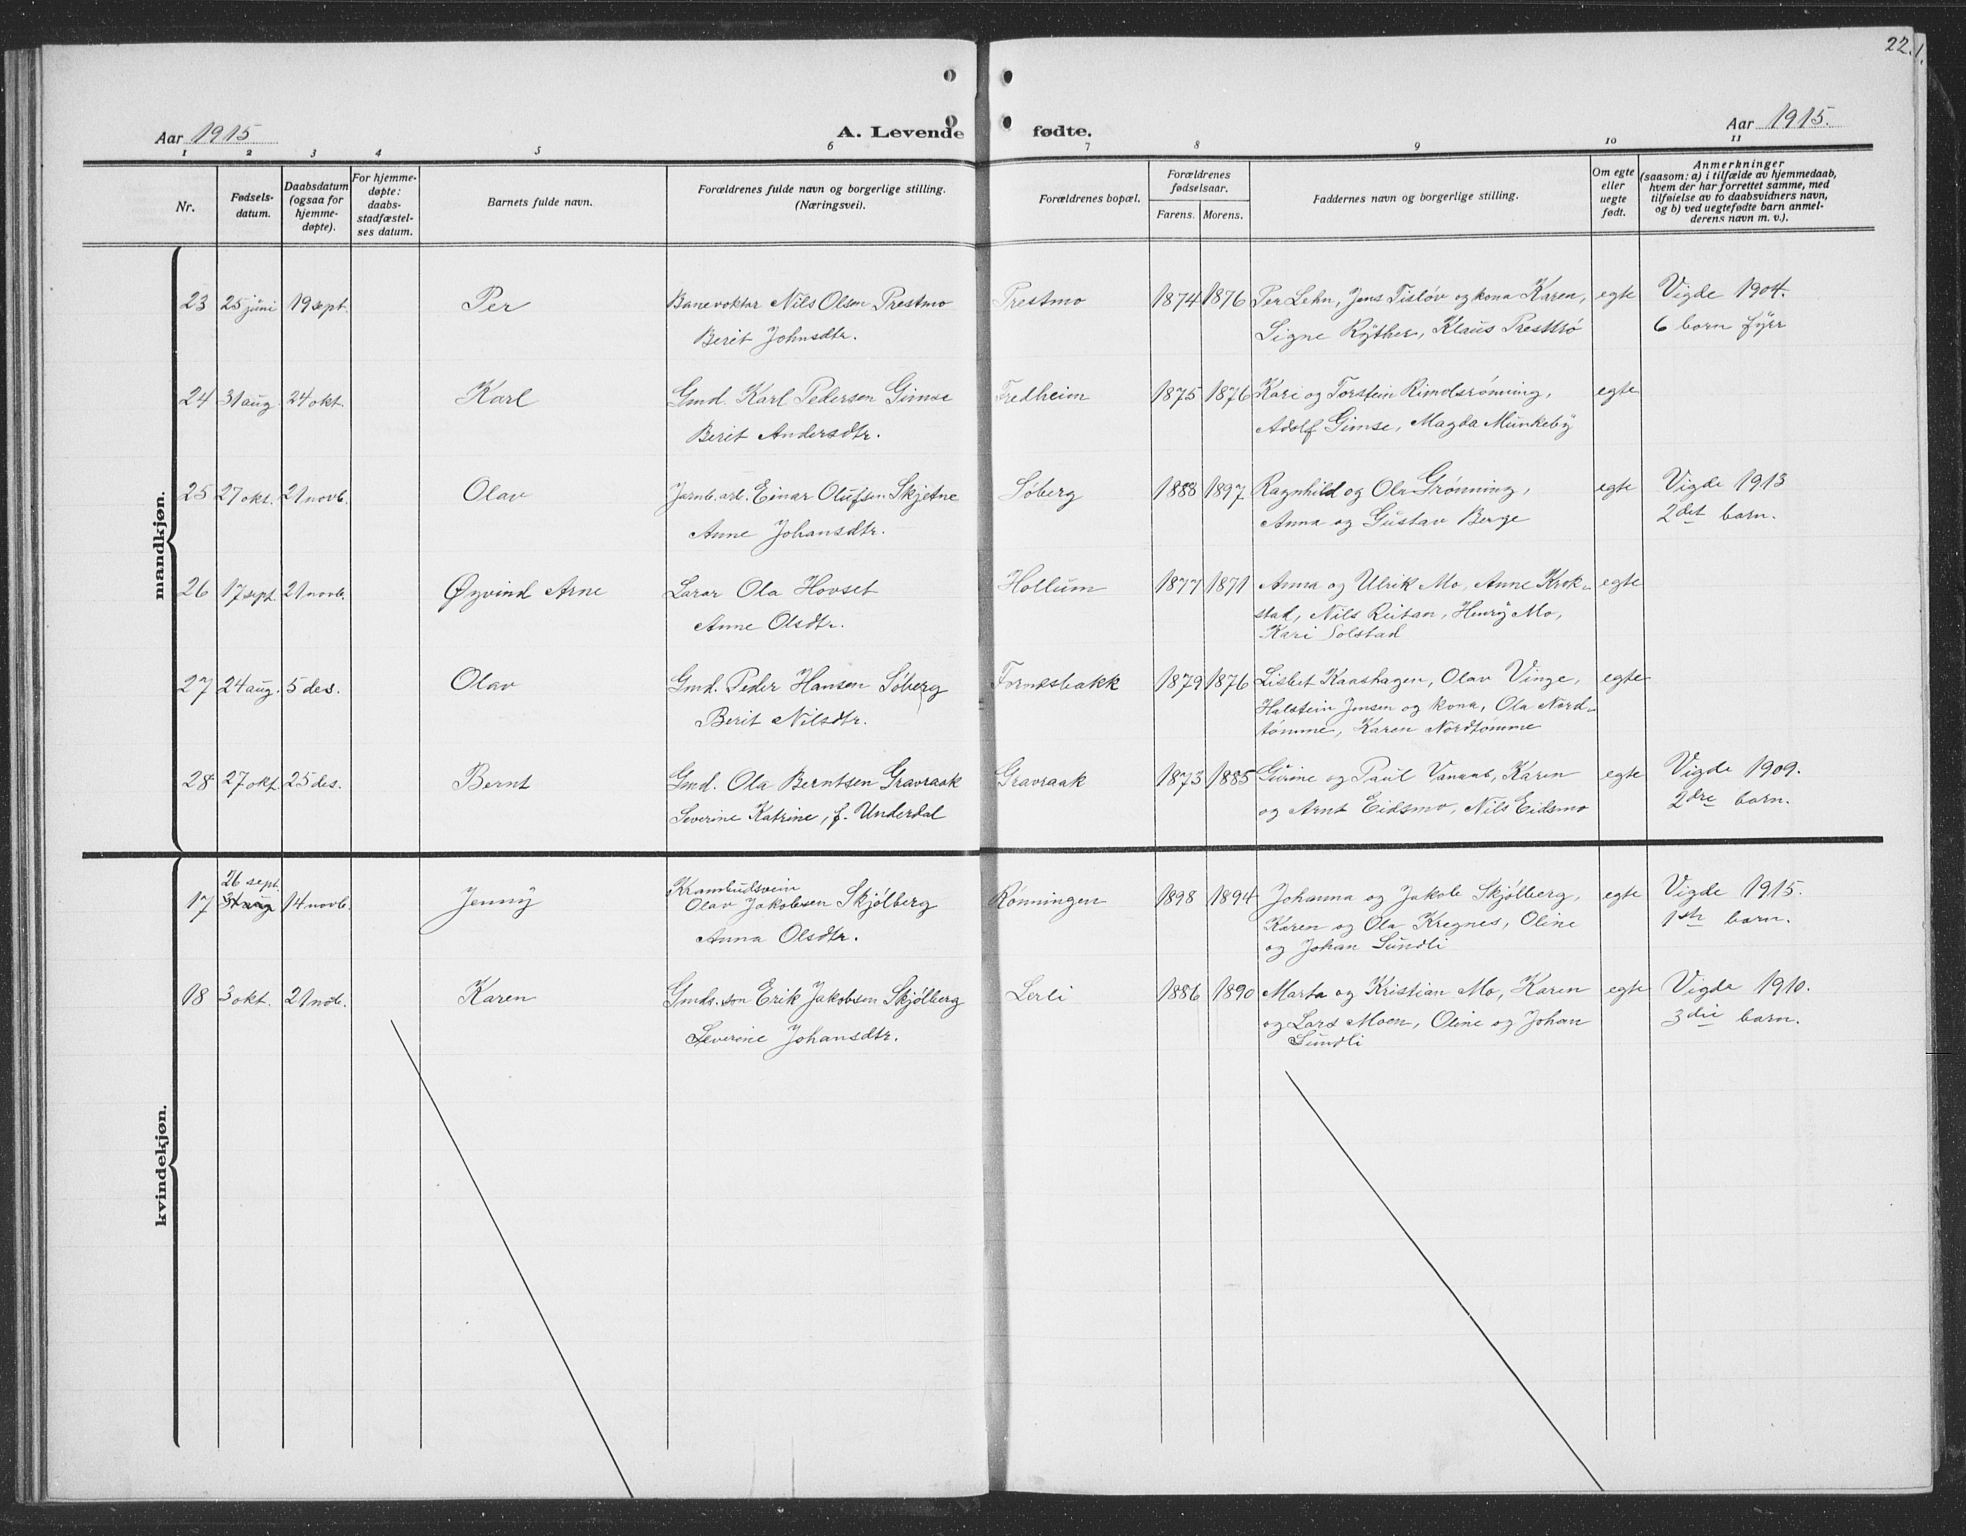 22.
Aar 1915
A. Levende fødte.
Aar 1915.
1 2 3 4 5 6 7 8 9 10 11
Nr.
Fødsels-
datum.
Daabsdatum
(ogsaa for
hjemme-
døpte).
For hjemme-
døpte:
daabs-
stadfæstel-
ses datum.
Barnets fulde navn.
Forældrenes fulde navn og borgerlige stilling.
(Næringsvei).
Forældrenes bopæl.
Forældrenes
fødselsaar.
Farens. Morens.
Faddernes navn og borgerlige stilling.
Om egte
eller
uegte
født.
Anmerkninger
(saasom: a) i tilfælde av hjemmedaab,
hvem der har forrettet samme, med
tilføielse av to daabsvidners navn,
og b) ved uegtefødte barn anmel-
derens navn m. v.).
mandkjøn.
23 25 juni 19 sept. Per Banevoktar Nils Olsen Prestmo Prestmo 1874 1876 Per Lehn, Jens Tisløv og kona Karen, egte Vigde 1904.
Berit Johnsdtr. Signe Rÿther, Klaus Presttrø 6 born fÿrr
24 31 aug. 24 okt. Karl Gmd. Karl Pedersen Gimse Fredheim 1875 1876 Kari og Torstein Rimolsrønning, egte
Berit Andersdtr. Adolf Gimse, Magda Munkeby
25 27 okt. 21 novb. Olav Jarnb.arb. Einar Olufsen Skjetne Søberg 1888 1897 Ragnhild og Ola Grønning, egte Vigde 1913
Anne Johansdtr. Anna og Gustav Berge 2det barn.
26 17 sept. 21 novb. Øyvind Arne Lærar Ola Hovset Hollum 1877 1871 Anna og Ulrik Mo, Anne Krok- egte
Anne Olsdtr. stad, Nils Reitan, Henrÿ Mo,
Kari Solstad
27 24 aug. 5 des. Olav Gmd. Peder Hansen Søberg Fornesbakk 1879 1876 Lisbet Kaashagen, Olav Vinge, egte
Berit Nilsdtr. Halstein Jensen og kona, Ola Nord-
tømme, Karen Nordtømme
28 27 okt. 25 des. Bernt Gmd. Ola Berntsen Gravraak Gravraak 1873 1885 Gurine og Paul Karen egte Vigde 1909.
Severine Katrine, f. Underdal og Arnt Eidsmo, Nils Eidsmo 2dre barn.
kvindekjøn.
26 sept. Krambudsvein
17 31 aug 14 novb. Jenny Olav Jakobsen Skjølberg Rønningen 1898 1894 Johanna og Jakob Skjølberg, egte Vigde 1915.
Anna Olsdtr. Karen og Ola Kregnes, Oline 1ste barn.
og Johan Sundli
18 3 okt. 21 nob. Karen Gmds.son Erik Jakobsen Skjølberg Lerli 1886 1890 Marta og Kristian Mo, Karen egte Vigde 1910.
Severine Johansdtr. og Lars Moen, Oline og Johan 3die barn.
Sundli